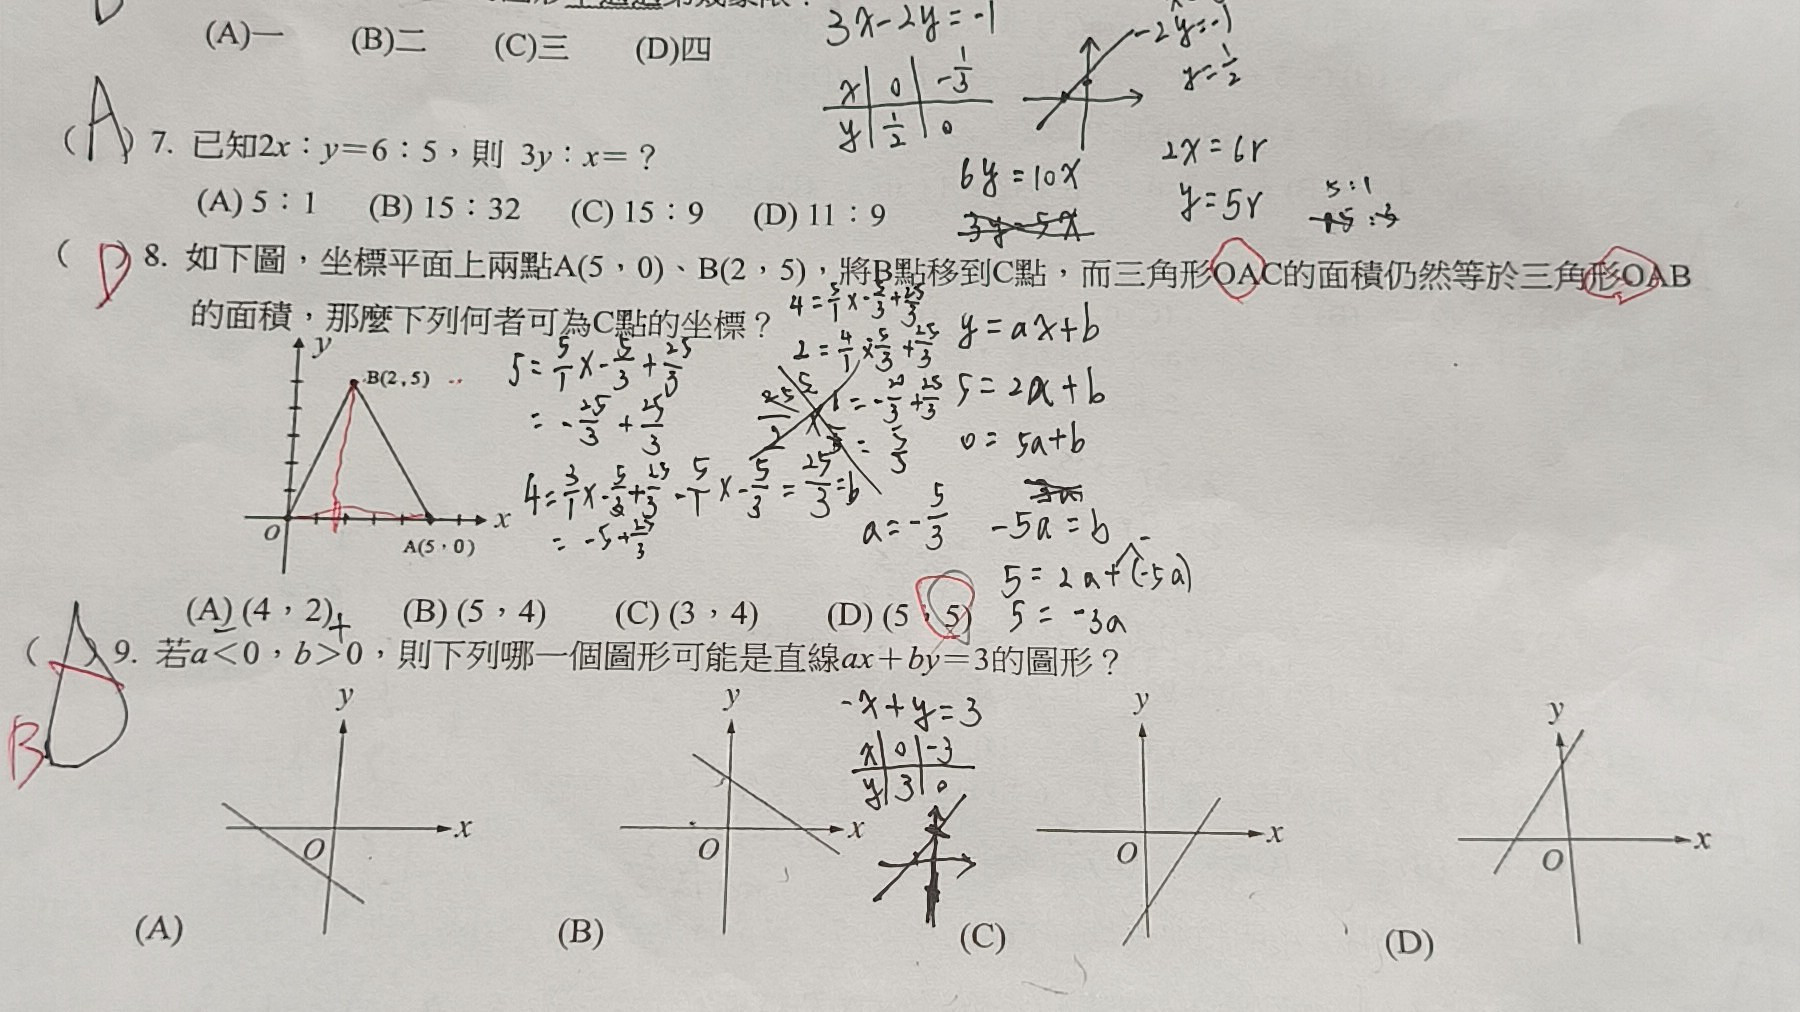 (A)一 (B)二 (C)三 (D)四
3x-2y=-1
x 0 -1/3
y 1/2 0
-2y=-1
y=1/2
(A) 7. 已知2x：y=6：5，則 3y：x=？
6y=10x
2x=6r
y=5r
5:1
(A) 5：1 (B) 15：32 (C) 15：9 (D) 11：9
(D) 8. 如下圖，坐標平面上兩點A(5，0)、B(2，5)，將B點移到C點，而三角形OAC的面積仍然等於三角形OAB
的面積，那麼下列何者可為C點的坐標？
y
B(2,5)
O
x
A(5，0)
5=5/1x-5/3+25/3
=-25/3+25/3
4=3/1x-5/3+25/3
=-5+25/3
4=5/1x-5/3+25/3
2=4/1x-5/3+25/3
-5/1x-5/3=25/3=b
y=ax+b
5=2a+b
0=5a+b
-5a=b
a=-5/3
5=2a+(-5a)
5=-3a
(A) (4，2) (B) (5，4) (C) (3，4) (D) (5，5)
+
(D) 9. 若a<0，b>0，則下列哪一個圖形可能是直線ax+by=3的圖形？
B
-x+y=3
x 0 -3
y 3 0
y
x
O
(A)
y
x
O
(B)
y
x
O
(C)
y
x
O
(D)